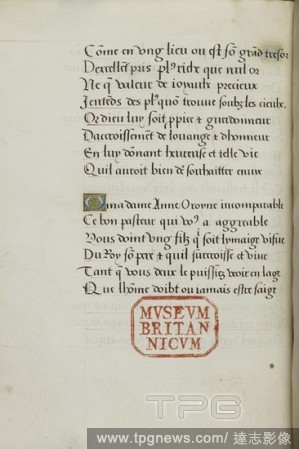 Cõme en vng lieu ou est sõ grãd tresor
Dexcellẽt pris plꝰ riche que nul or
Ne q̃ valeur de ioyaulx precieux
Jentẽds des plꝰ quõ trouue soubz les cieulx
Or dieu luy soit ꝓpice et guerdonneur
Daccroissemẽt de louange et dhonneur
En luy dõnant heureuse et telle vie
Quil auroit bien de souhaitter enuie
O ma dame Anne O royne incomparable
Ce bon pasteur qui voꝰ a aggreable
Vous doint vng filz q̃ soit lymaige viſue
Du Roy sõ pere et quil succroisse et viue
Tant q̃ vous deux le puissiez veoir en lage
Que lhõme doibt ou iamais estre saige
MVSEVM
BRITAN
NICVM
TPG
www.tpgnews.com / 達志影像